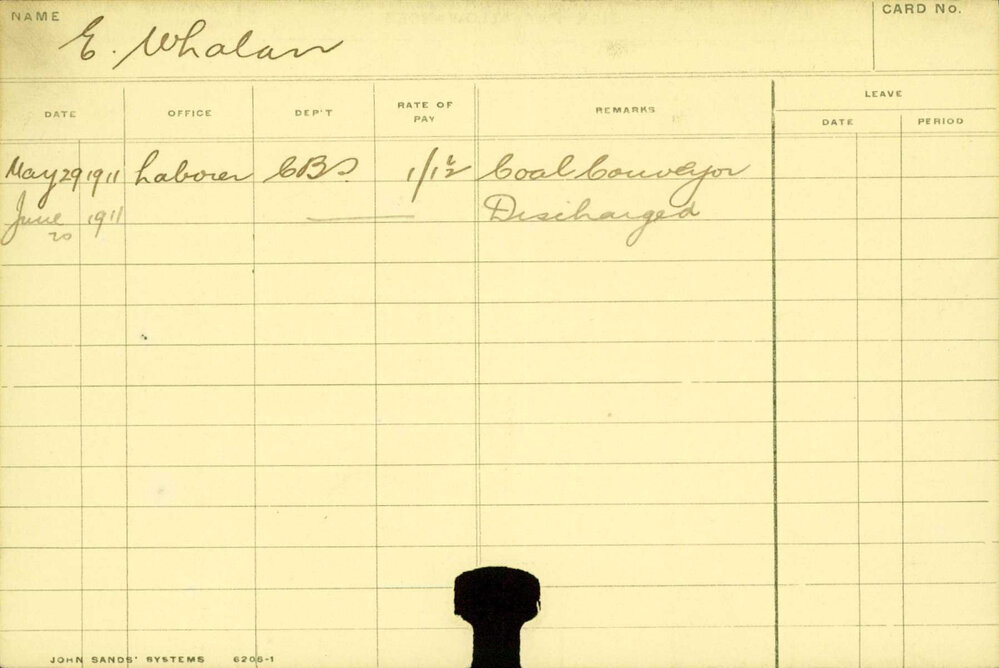 NAME
E. Whalan
CARD No.
DATE OFFICE DEP'T RATE OF PAY REMARKS LEAVE
DATE PERIOD
May 29 1911 Laborer CBS Coal Conveyor
June 20 1911 — Discharged
JOHN SANDS' SYSTEMS 6206-1